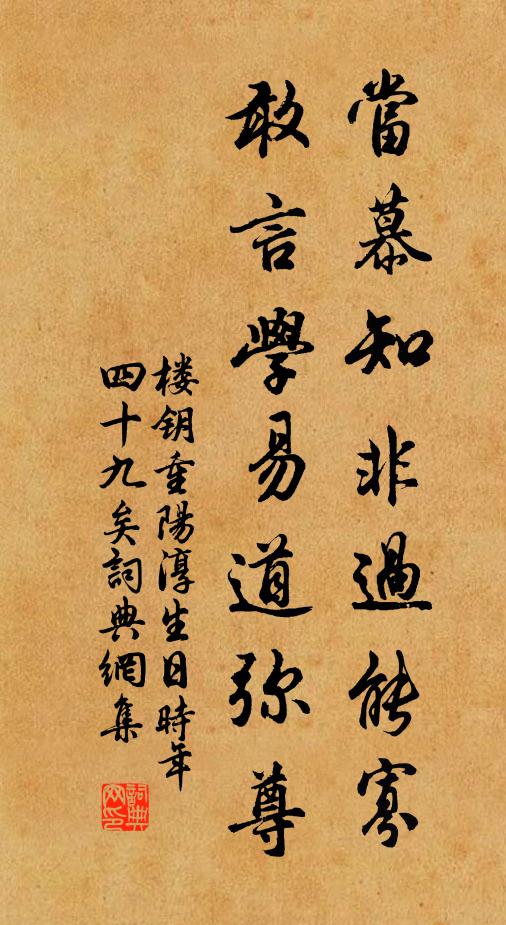 當慕知非過能寡
敢言學易道弥尊
楼钥重陽淳生日時年
四十九矣詞典網集
詞典網印